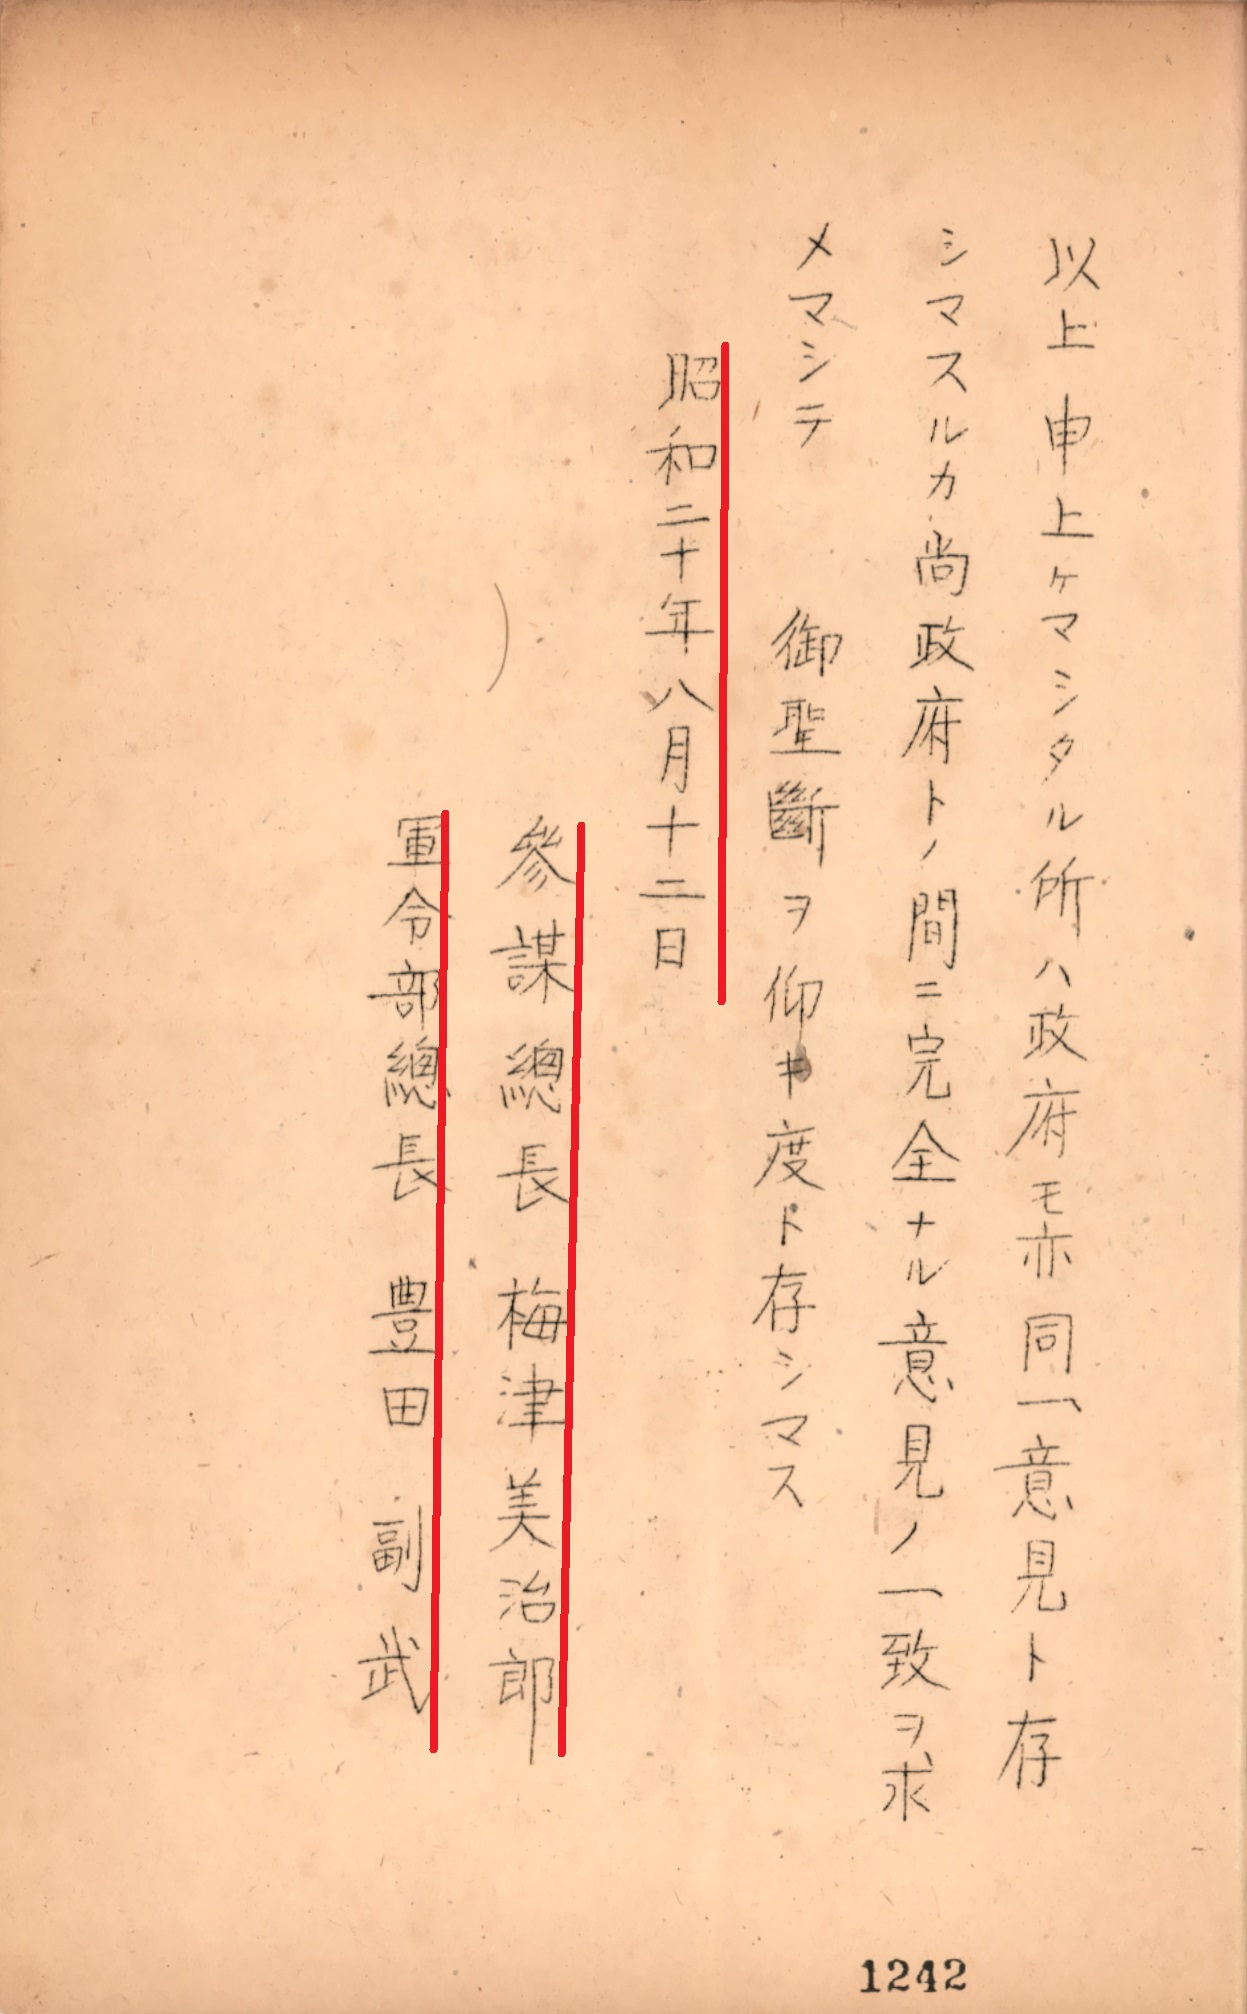 以上申上ケマシタル所ハ政府モ亦同一意見ト存
シマスルカ尚政府トノ間ニ完全ナル意見ノ一致ヲ求
メマシテ　御聖斷ヲ仰キ度ト存シマス
昭和二十年八月十二日
參謀總長　梅津美治郎
軍令部總長　豊田副武
1242